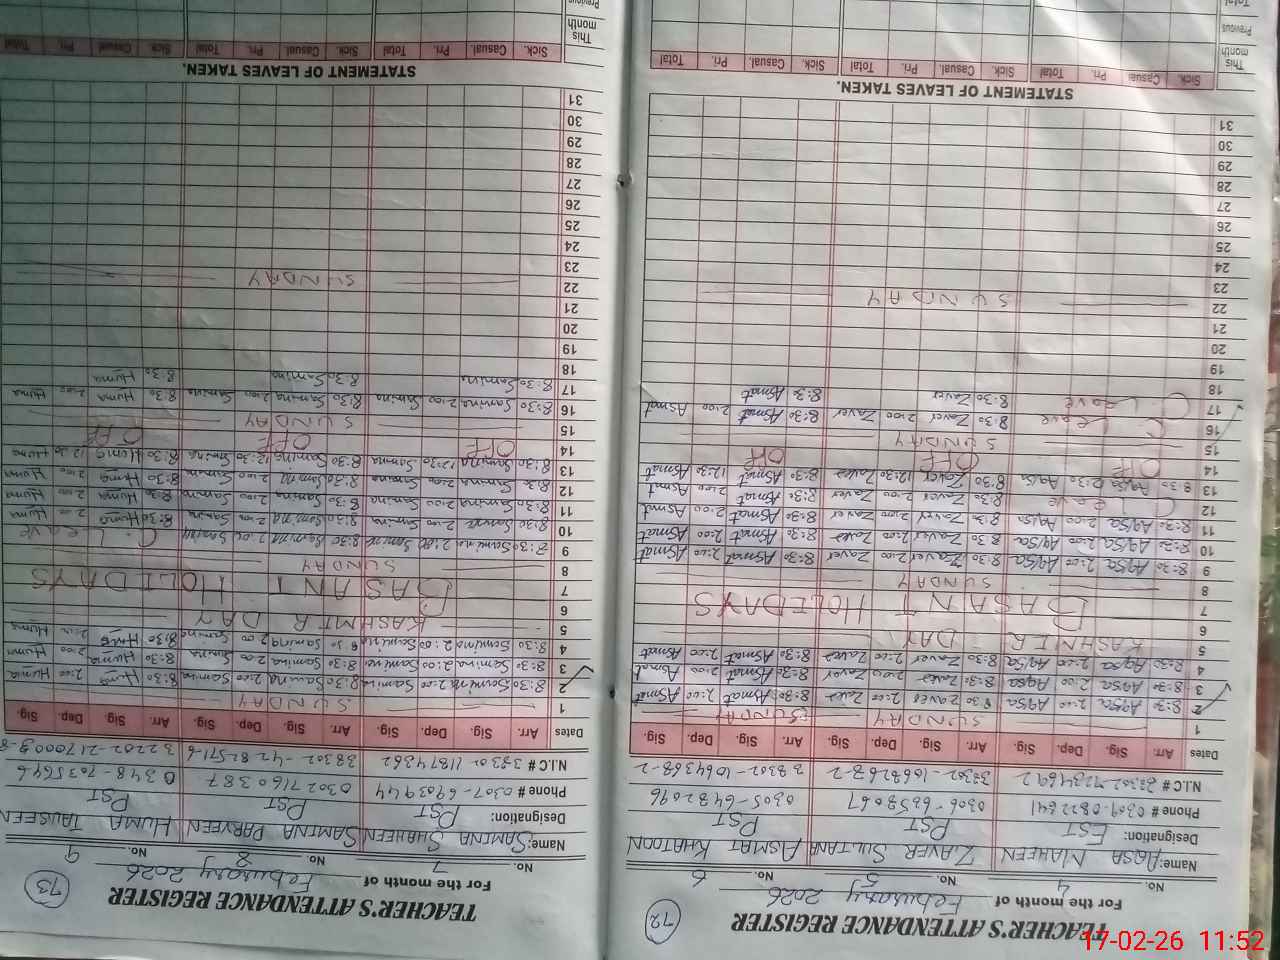 TEACHER'S ATTENDANCE REGISTER
72
For the month of February 2026
No. 4 No. 5 No. 6
Name: AQSA MAHEEN ZAVER SULTANA ASMAT KHATOON
Designation: EST PST PST
Phone # 0309-0822841 0306-6658067 0305-6482096
N.I.C #
Dates Arr. Sig. Dep. Sig. Arr. Sig. Dep. Sig. Arr. Sig. Dep. Sig.
1 SUNDAY SUNDAY
2 8:30 AQSA 2:00 AQSA 8:30 Zaver 2:00 Zaver 8:30 Asmat 2:00 Asmat
3 8:30 AQSA 2:00 AQSA 8:30 Zaver 2:00 Zaver 8:30 Asmat 2:00 Asmat
4 8:30 AQSA 2:00 AQSA 8:30 Zaver 2:00 Zaver 8:30 Asmat 2:00 Asmat
5 KASHMIR DAY
6
7 BASANT HOLIDAYS
8 SUNDAY
9 8:30 AQSA 2:00 AQSA 8:30 Zaver 2:00 Zaver 8:30 Asmat 2:00 Asmat
10 8:30 AQSA 2:00 AQSA 8:30 Zaver 2:00 Zaver 8:30 Asmat 2:00 Asmat
11 8:30 AQSA 2:00 AQSA 8:30 Zaver 2:00 Zaver 8:30 Asmat 2:00 Asmat
12 C. Leave 8:30 Zaver 2:00 Zaver 8:30 Asmat 2:00 Asmat
13 8:30 AQSA 12:30 AQSA 8:30 Zaver 12:30 Zaver 8:30 Asmat 12:30 Asmat
14 OFF OFF OFF
15 SUNDAY
16 C. Leave 8:30 Zaver 2:00 Zaver 8:30 Asmat 2:00 Asmat
17 C. Leave 8:30 Zaver 8:30 Asmat
18
19
20
21
22 SUNDAY
23
24
25
26
27
28
29
30
31
STATEMENT OF LEAVES TAKEN.
Sick. Casual. Pri. Total Sick. Casual. Pri. Total Sick. Casual. Pri. Total
This month
Previous
Total
TEACHER'S ATTENDANCE REGISTER
73
For the month of February 2026
No. 7 No. 8 No. 9
Name: SAMINA SHAHEEN SAMINA PARVEEN HUMA TAUSEEN
Designation: PST PST PST
Phone # 0307-6903944 03027160387 0348-7035646
N.I.C #
Dates Arr. Sig. Dep. Sig. Arr. Sig. Dep. Sig. Arr. Sig. Dep. Sig.
1 SUNDAY
2 8:30 Samina 2:00 Samina 8:30 Samina 2:00 Samina 8:30 Huma 2:00 Huma
3 8:30 Samina 2:00 Samina 8:30 Samina 2:00 Samina 8:30 Huma 2:00 Huma
4 8:30 Samina 2:00 Samina 8:30 Samina 2:00 Samina 8:30 Huma 2:00 Huma
5 KASHMIR DAY
6
7 BASANT HOLIDAYS
8 SUNDAY
9 8:30 Samina 2:00 Samina 8:30 Samina 2:00 Samina C. Leave
10 8:30 Samina 2:00 Samina 8:30 Samina 2:00 Samina 8:30 Huma 2:00 Huma
11 8:30 Samina 2:00 Samina 8:30 Samina 2:00 Samina 8:30 Huma 2:00 Huma
12 8:30 Samina 2:00 Samina 8:30 Samina 2:00 Samina 8:30 Huma 2:00 Huma
13 8:30 Samina 12:30 Samina 8:30 Samina 12:30 Samina 8:30 Huma 12:30 Huma
14 OFF OFF OFF
15 SUNDAY
16 8:30 Samina 2:00 Samina 8:30 Samina 2:00 Samina 8:30 Huma 2:00 Huma
17 8:30 Samina 8:30 Samina 8:30 Huma
18
19
20
21
22 SUNDAY
23
24
25
26
27
28
29
30
31
STATEMENT OF LEAVES TAKEN.
Sick. Casual. Pri. Total Sick. Casual. Pri. Total Sick. Casual. Pri. Total
This month
Previous
17-02-26 11:52